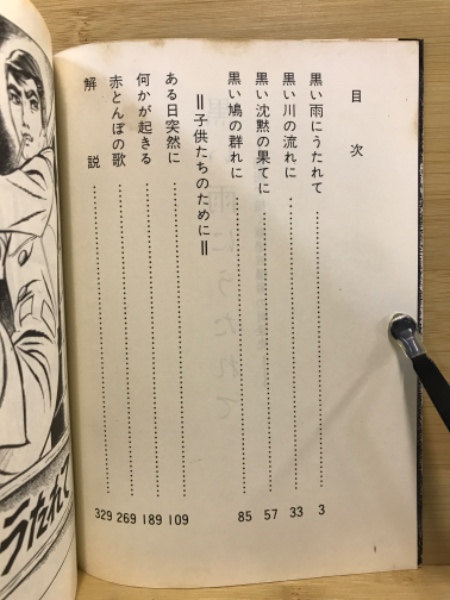 目次
黒い雨にうたれて 3
黒い川の流れに 33
黒い沈黙の果てに 57
黒い鳩の群れに 85
＝子供たちのために＝
ある日突然に 109
何かが起きる 189
赤とんぼの歌 269
解説 329
うたれて